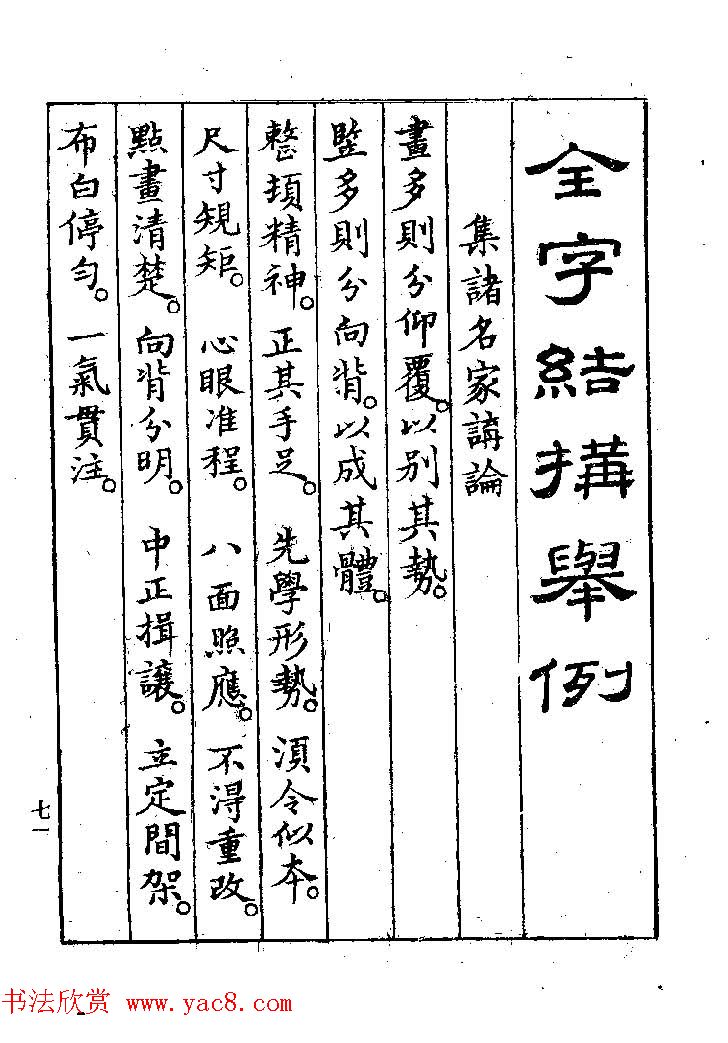 全字結構舉例
集諸名家講論
畫多則分仰覆。以別其勢。
竪多則分向背。以成其體。
整頓精神。正其手足。先學形勢。須令似本。
尺寸規矩。心眼准程。八面照應。不得重改。
點畫清楚。向背分明。中正揖讓。立定間架。
布白停勻。一氣貫注。
七一
书法欣赏 www.yac8.com